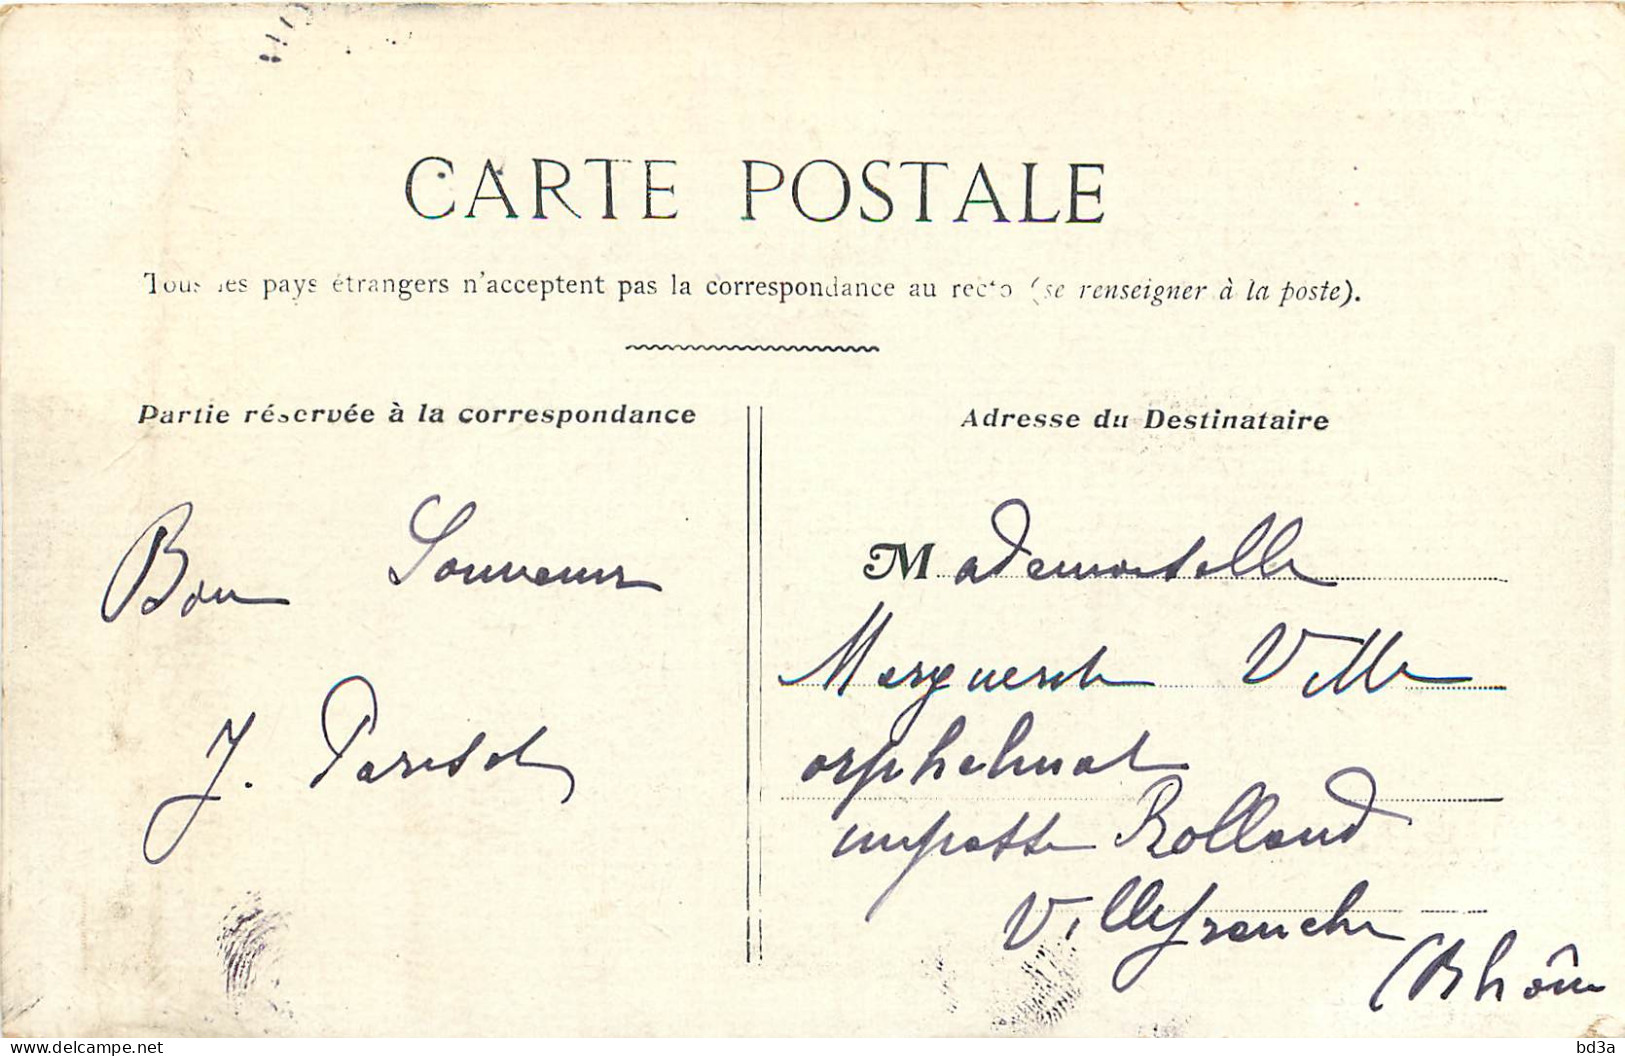 CARTE POSTALE
Tous les pays étrangers n'acceptent pas la correspondance au recto (se renseigner à la poste).
Partie réservée à la correspondance
Adresse du Destinataire
Bon Souvenir
J. Parisot
Mademoiselle
Marguerite Ville
orphelinat
impasse Rolland
Villefranche
(Rhône
delcampe.net
bd3a